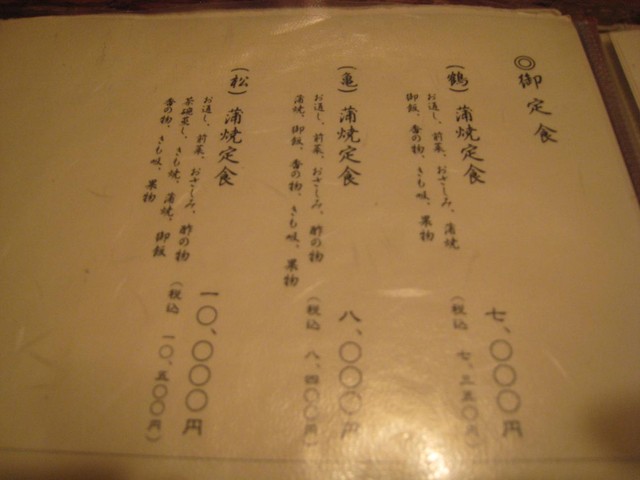 ◎御定食
(鶴) 蒲焼定食
お通し、前菜、おさしみ、蒲焼
御飯、香の物、きも吸、果物
七、〇〇〇円
(税込 七、三五〇円)
(亀) 蒲焼定食
お通し、前菜、おさしみ、酢の物
蒲焼、御飯、香の物、きも吸、果物
八、〇〇〇円
(税込 八、四〇〇円)
(松) 蒲焼定食
お通し、前菜、おさしみ、酢の物
茶碗蒸し、きも焼、蒲焼、御飯
香の物、きも吸、果物
一〇、〇〇〇円
(税込 一〇、五〇〇円)